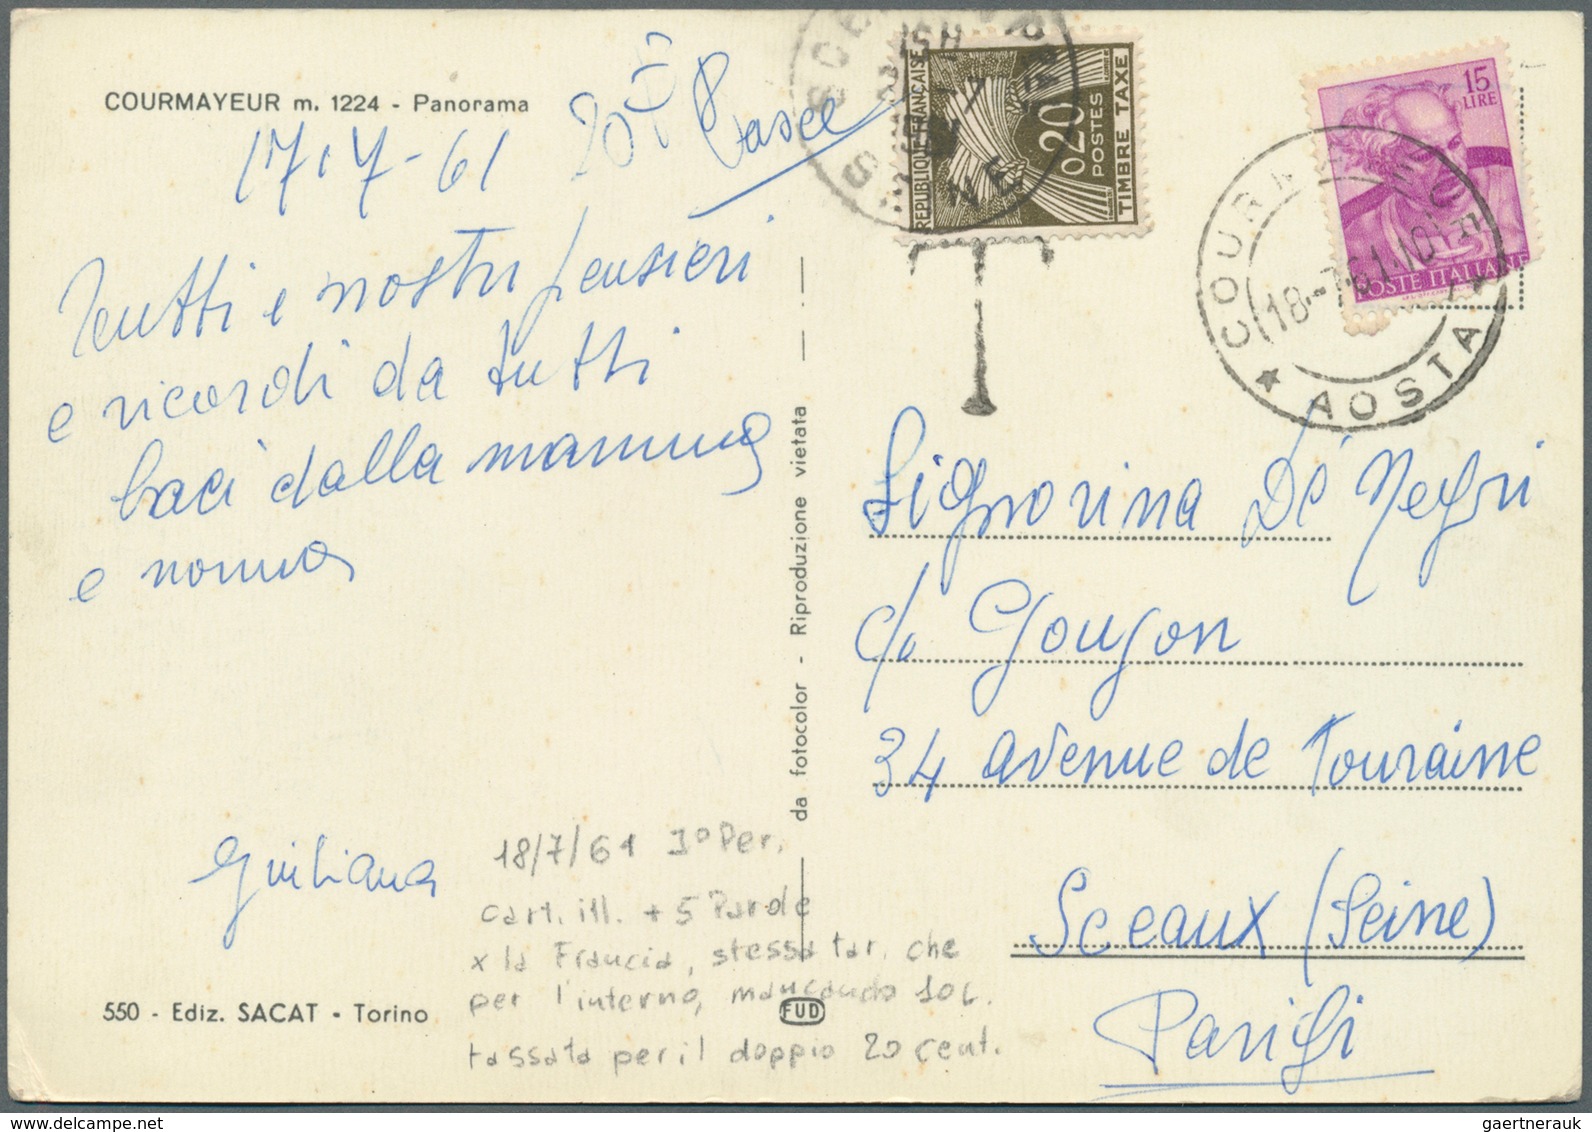 COURMAYEUR m. 1224 - Panorama
17.7-61
20
REPUBLIQUE FRANÇAISE
0,20
POSTES
TIMBRE TAXE
SCE
SEINE
T
15
LIRE
POSTE ITALIANE
COURMAYEUR
18-7-61.10
★ AOSTA ★
Tutti i nostri pensieri
e ricordi da tutti
baci dalla mamma
e nonna
Giuliana
da fotocolor - Riproduzione vietata
Signorina De Negri
c/o Goujon
34 avenue de Touraine
Sceaux (Seine)
Parigi
18/7/61 I° Per.
cart. ill. + 5 Parole
x la Francia, stessa tar. che
per l'interno, mancando 10 L.
tassata per il doppio 20 cent.
550 - Ediz. SACAT - Torino
FUD
gaertnerauk